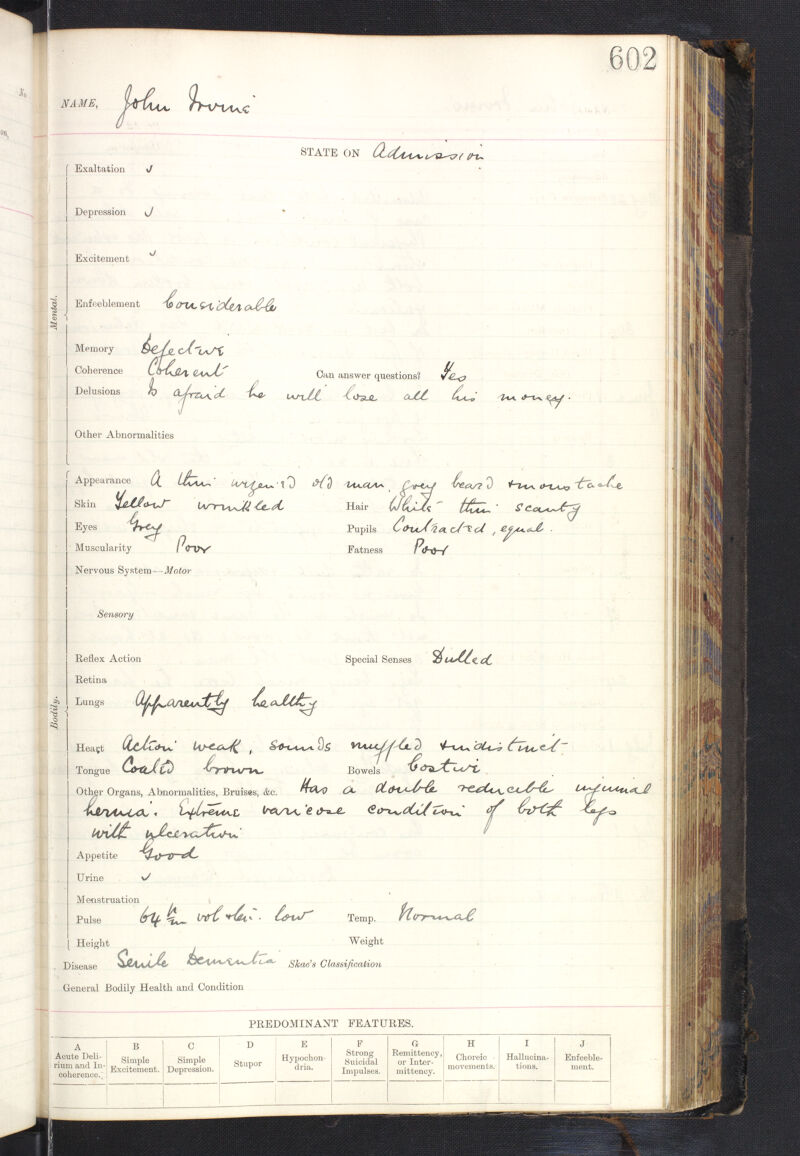 602
NAME, John Irvine
STATE ON Admission
Mental.
Exaltation ✓
Depression ✓
Excitement ✓
Enfeeblement Considerable
Memory Defective
Coherence Coherent Can answer questions? Yes
Delusions Is afraid he will lose all his money.
Other Abnormalities
Bodily.
Appearance A thin wizened old man, grey beard & moustache
Skin Yellow wrinkled Hair White thin scanty
Eyes Grey Pupils Contracted, equal.
Muscularity Poor Fatness Poor
Nervous System—Motor
Sensory
Reflex Action Special Senses Dulled
Retina
Lungs Apparently healthy
Heart Action weak, sounds muffled & indistinct
Tongue Coated brown Bowels Costive
Other Organs, Abnormalities, Bruises, &c. Has a double reducible inguinal
hernia. Extreme varicose condition of both legs
with ulceration
Appetite Good
Urine ✓
Menstruation
Pulse 64 vol & ten. low Temp. Normal
Height Weight
Disease Senile Dementia Skae's Classification
General Bodily Health and Condition
PREDOMINANT FEATURES.
A B C D E F G H I J
Acute Deli- Simple Simple Stupor Hypochon- Strong Remittency, Choreic Hallucina- Enfeeble-
rium and In- Excitement. Depression. dria. Suicidal or Inter- movements. tions. ment.
coherence. Impulses. mittency.